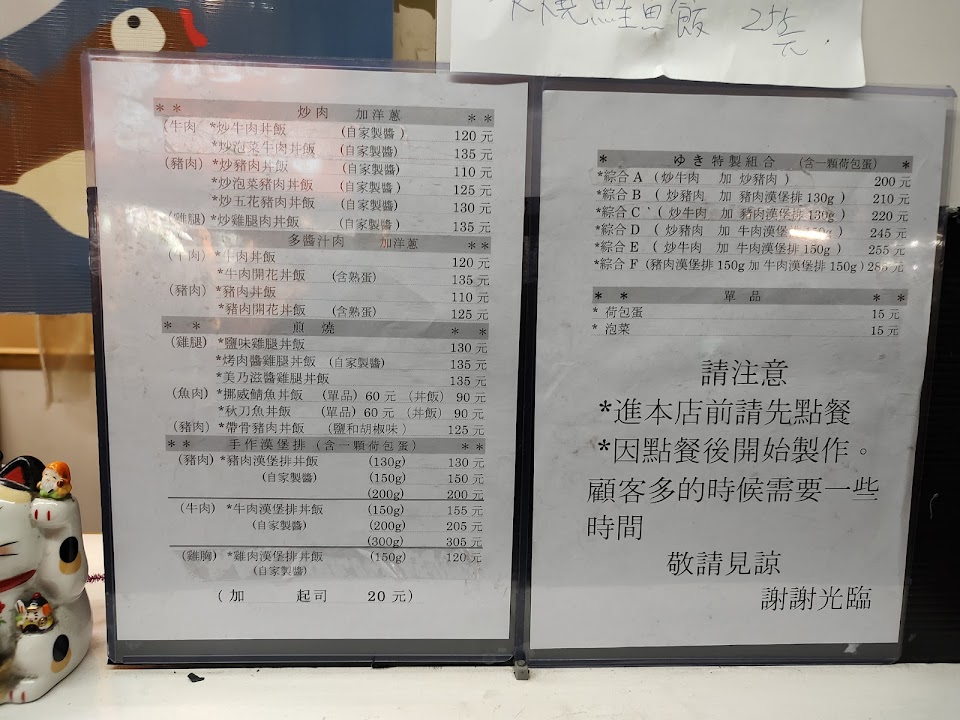 燒鮭魚飯 255元
** 炒肉 加洋蔥 **
(牛肉) *炒牛肉丼飯 (自家製醬) 120 元
*炒泡菜牛肉丼飯 (自家製醬) 135 元
(豬肉) *炒豬肉丼飯 (自家製醬) 110 元
*炒泡菜豬肉丼飯 (自家製醬) 125 元
*炒五花豬肉丼飯 (自家製醬) 130 元
(雞腿) *炒雞腿肉丼飯 (自家製醬) 135 元
多醬汁肉 加洋蔥 **
(牛肉) *牛肉丼飯 120 元
*牛肉開花丼飯 (含熟蛋) 135 元
(豬肉) *豬肉丼飯 110 元
*豬肉開花丼飯 (含熟蛋) 125 元
* * 煎燒 * *
(雞腿) *鹽味雞腿丼飯 130 元
*烤肉醬雞腿丼飯 (自家製醬) 135 元
*美乃滋醬雞腿丼飯 135 元
(魚肉) *挪威鯖魚丼飯 (單品) 60 元 (丼飯) 90 元
*秋刀魚丼飯 (單品) 60 元 (丼飯) 90 元
(豬肉) *帶骨豬肉丼飯 (鹽和胡椒味) 125 元
** 手作漢堡排 (含一顆荷包蛋) **
(豬肉) *豬肉漢堡排丼飯 (130g) 130 元
(自家製醬) (150g) 150 元
(200g) 200 元
(牛肉) *牛肉漢堡排丼飯 (150g) 155 元
(自家製醬) (200g) 205 元
(300g) 305 元
(雞胸) *雞肉漢堡排丼飯 (150g) 120 元
(自家製醬)
(加 起司 20 元)
* ゆき特製組合 (含一顆荷包蛋) *
*綜合 A (炒牛肉 加 炒豬肉) 200 元
*綜合 B (炒豬肉 加 豬肉漢堡排 130g) 210 元
*綜合 C (炒牛肉 加 豬肉漢堡排 130g) 220 元
*綜合 D (炒豬肉 加 牛肉漢堡排 150g) 245 元
*綜合 E (炒牛肉 加 牛肉漢堡排 150g) 255 元
*綜合 F (豬肉漢堡排 150g 加 牛肉漢堡排 150g) 285 元
* * 單品 * *
* 荷包蛋 15 元
* 泡菜 15 元
請注意
*進本店前請先點餐
*因點餐後開始製作。
顧客多的時候需要一些
時間
敬請見諒
謝謝光臨